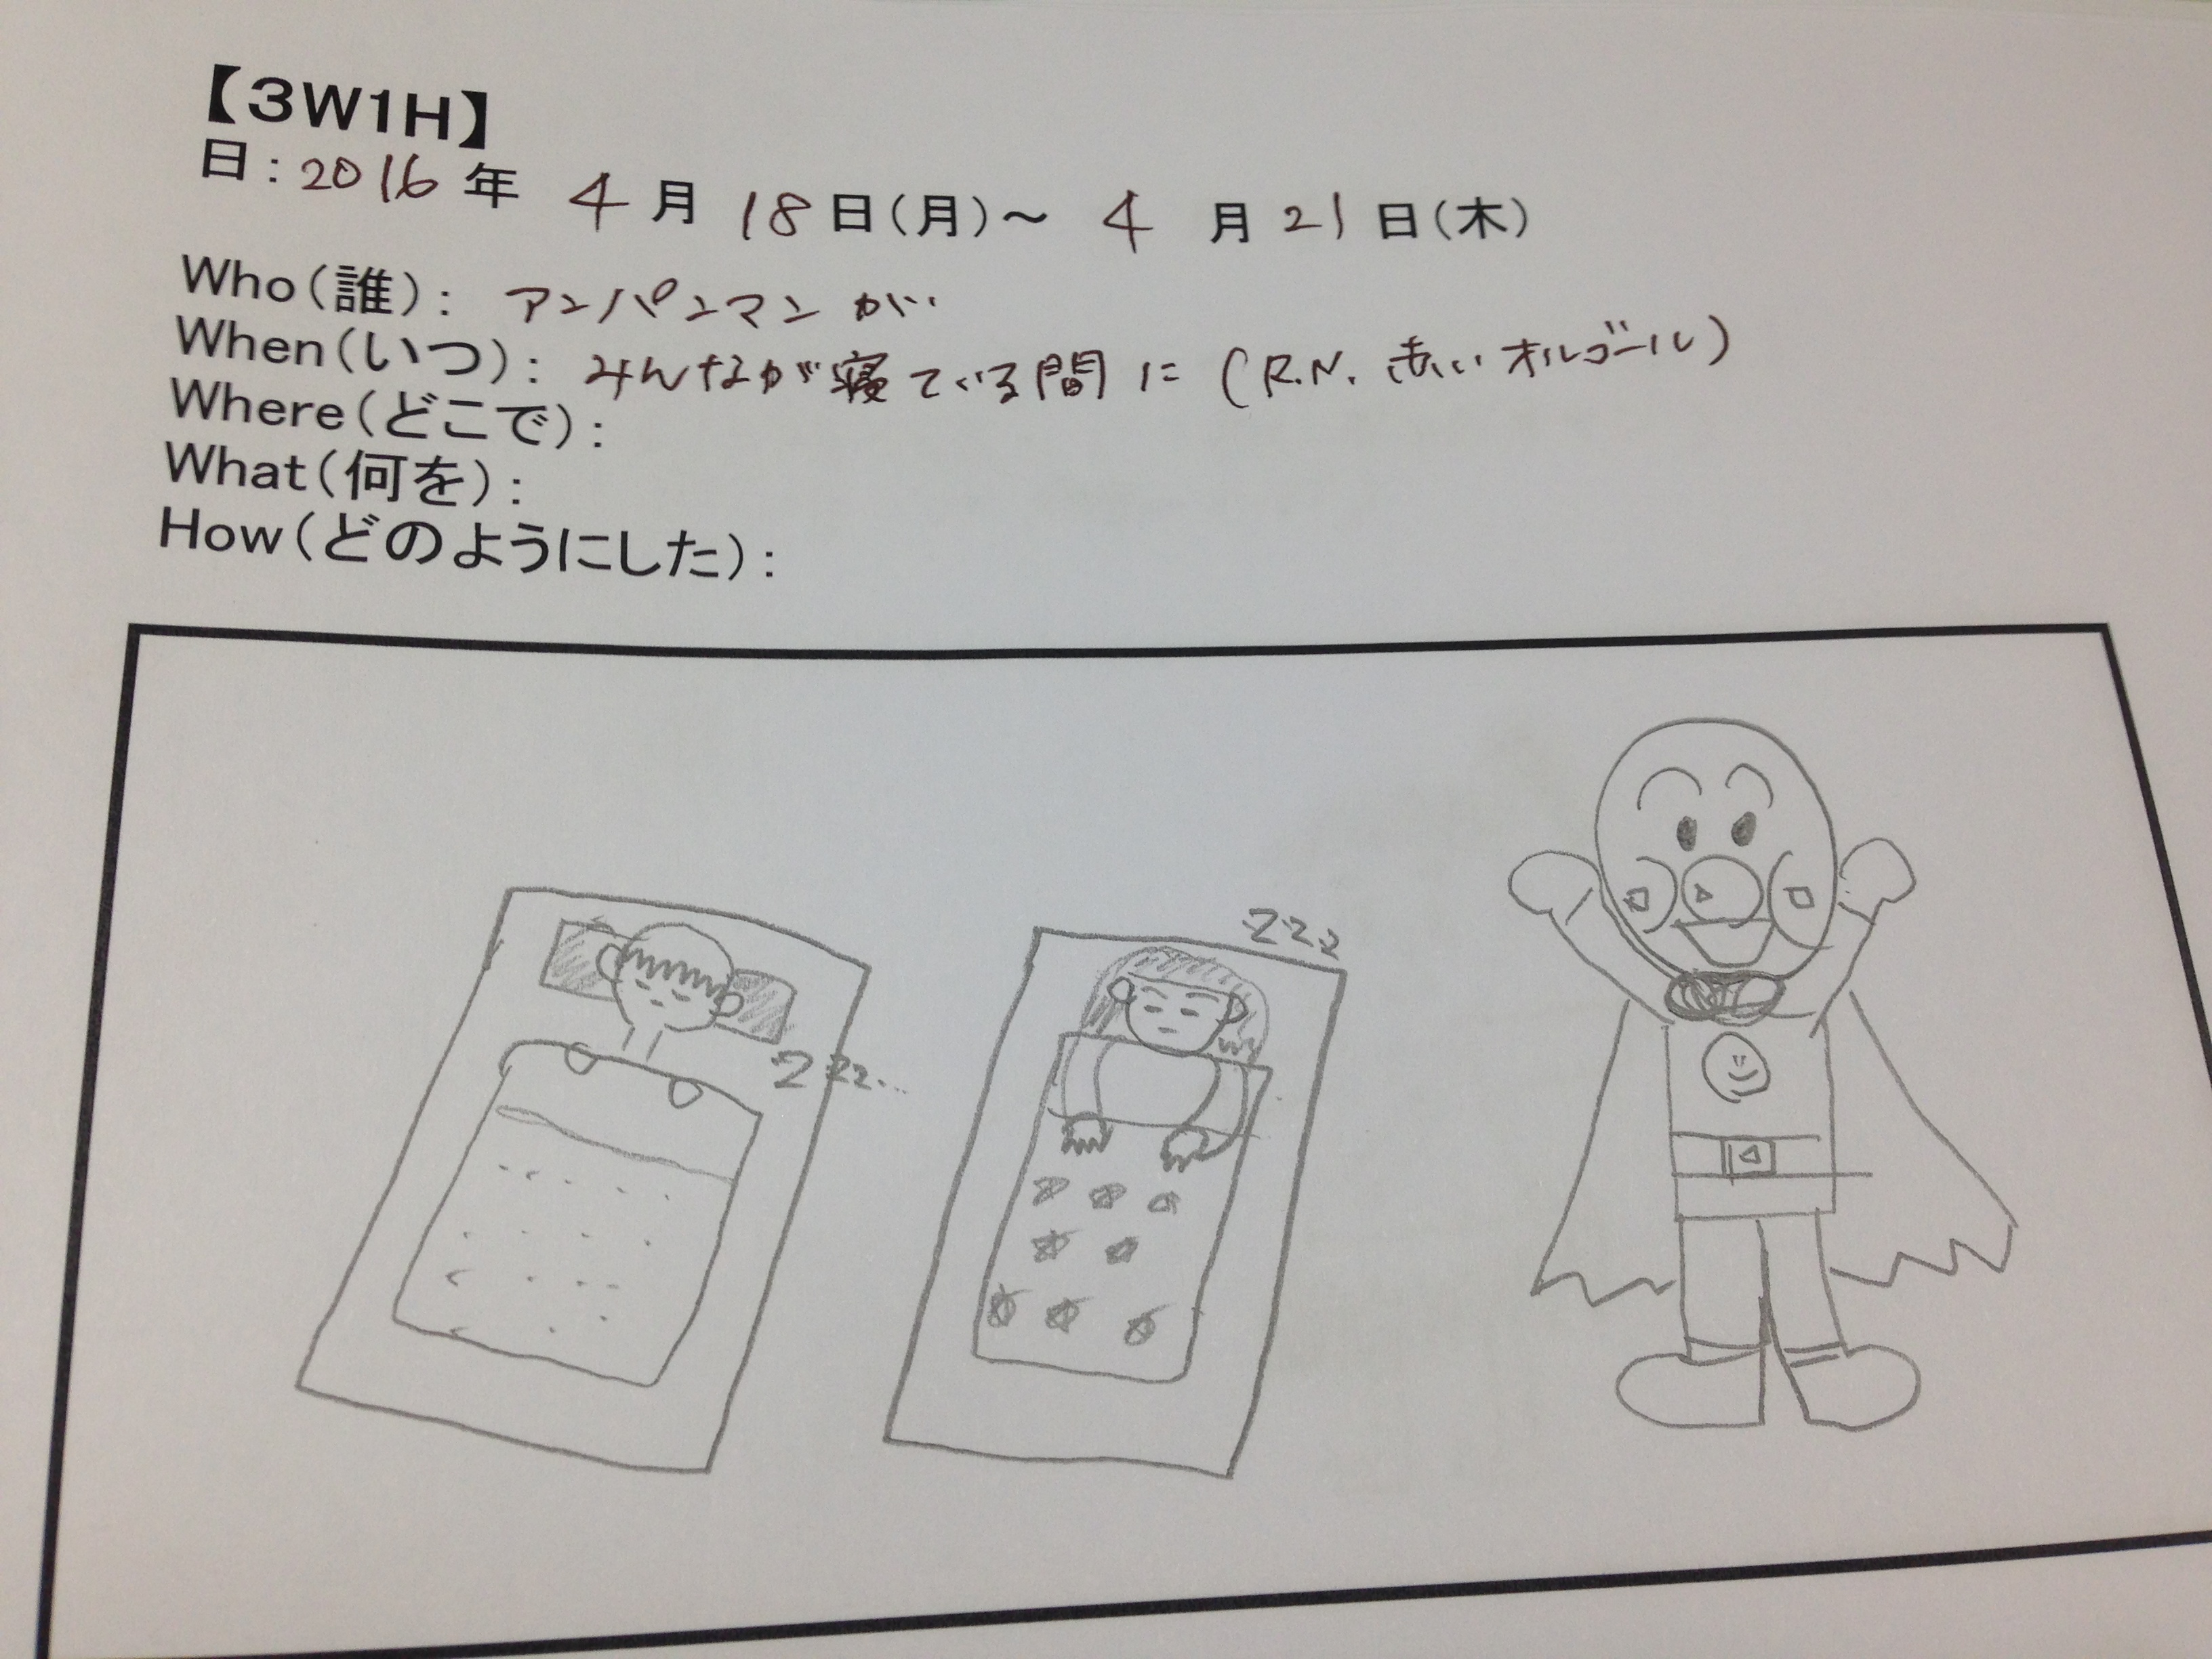 【3W1H】
日:2016年 4月 18日(月)～ 4月21日(木)
Who(誰): アンパンマンが
When(いつ): みんなが寝ている間に (R.N. 赤いオルゴール)
Where(どこで):
What(何を):
How(どのようにした):
zzz
zzzz...